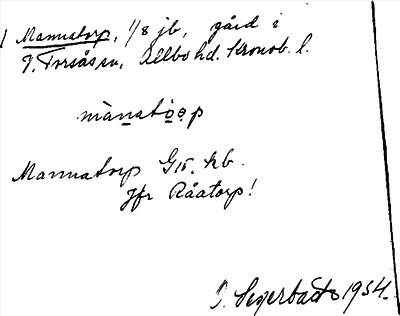 1 Mannatorp, 1/8 jb, gård i
V. Torsås sn, Allbo hd. Kronob. l.
mànatòrp
Mannatorp G15. kb.
Jfr Råatorp!
Segerbäck 1934.